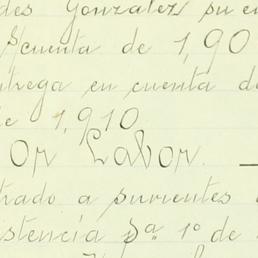 des Gonzalez su en
S/cuenta de 1,90
trega en cuenta de
e 1,910
or Labor. —
trado a parientes
istencia pa. 1o de